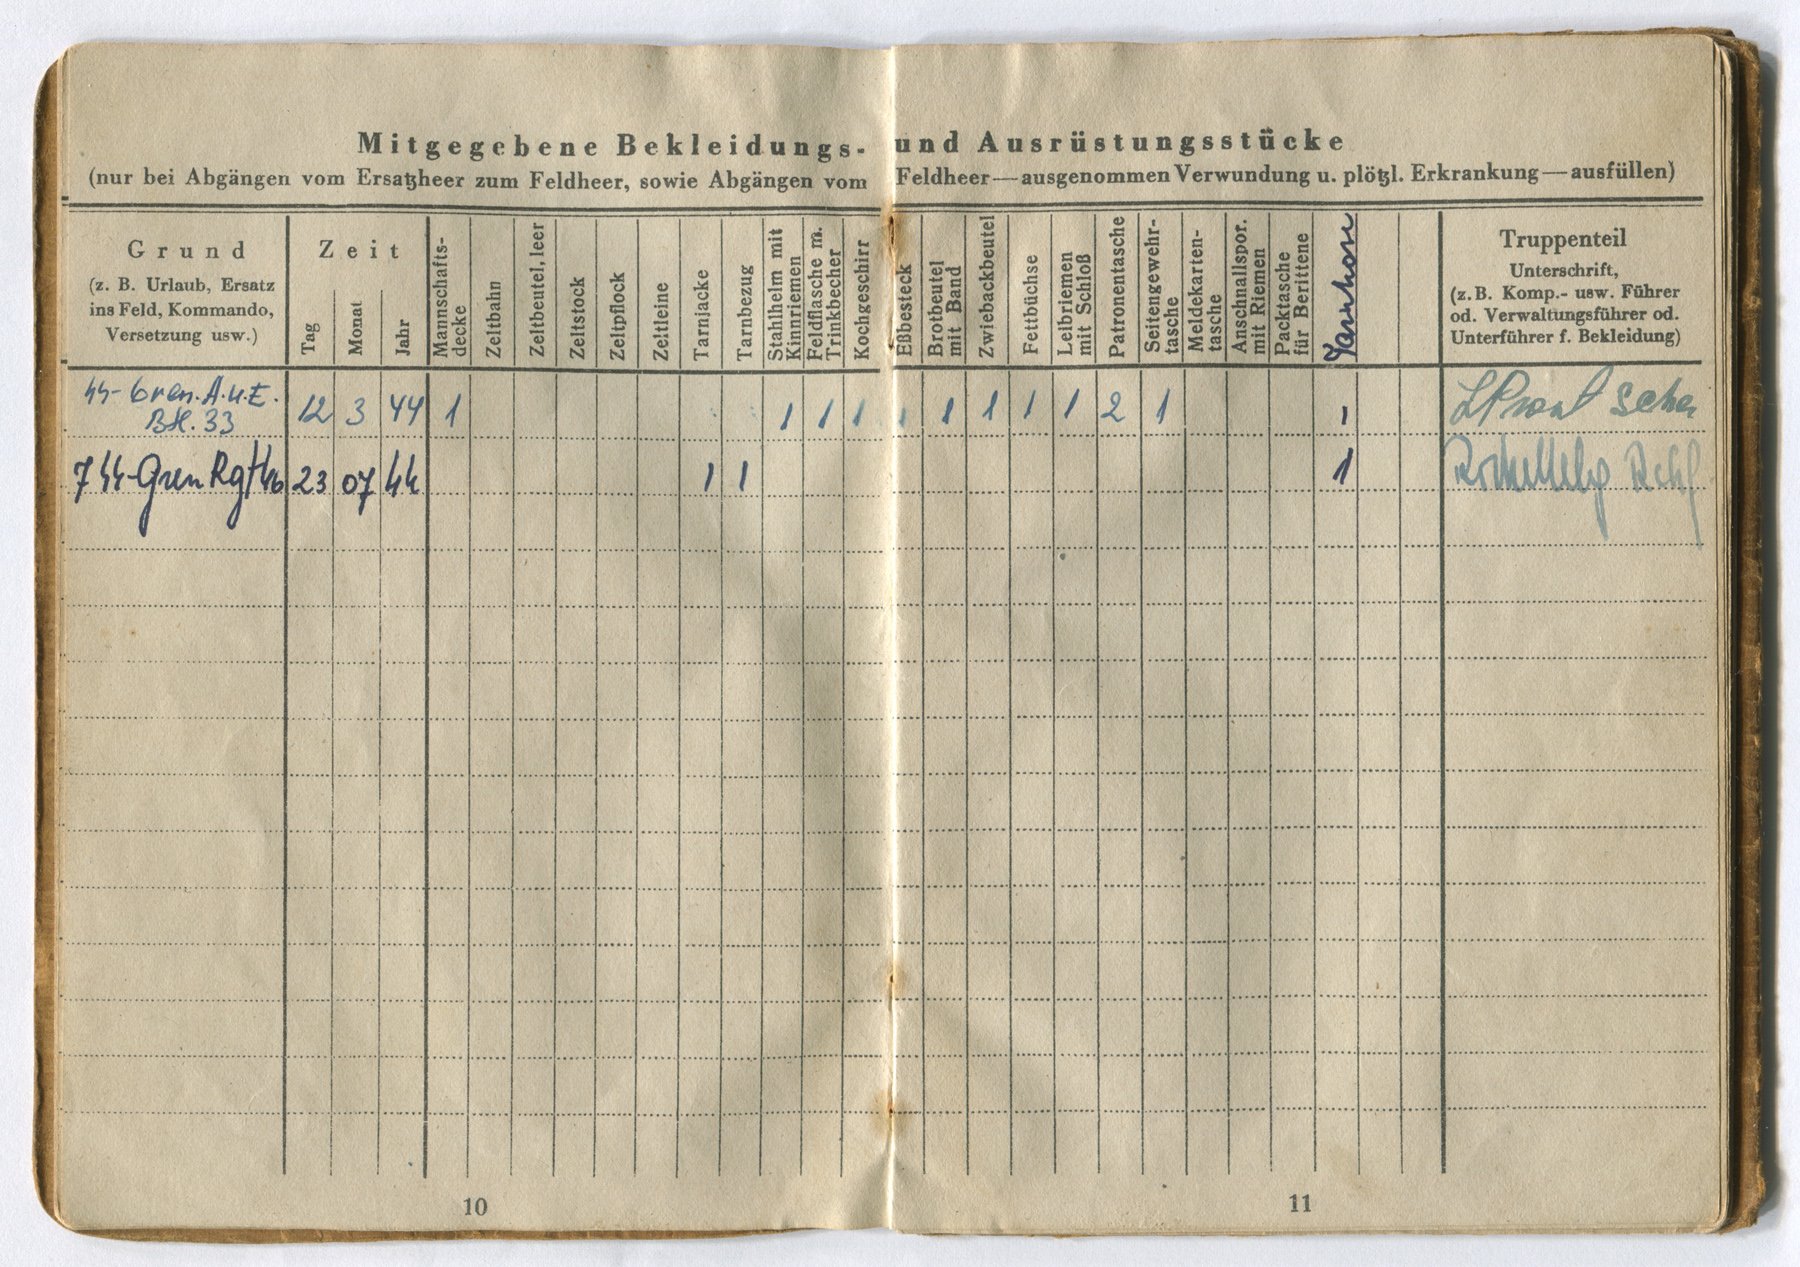 Mitgegebene Bekleidungs- und Ausrüstungsstücke
(nur bei Abgängen vom Ersatzheer zum Feldheer, sowie Abgängen vom Feldheer — ausgenommen Verwundung u. plötzl. Erkrankung — ausfüllen)
Grund
(z. B. Urlaub, Ersatz
ins Feld, Kommando,
Versetzung usw.)
Zeit
Tag
Monat
Jahr
Mannschafts-
decke
Zeltbahn
Zeltbeutel, leer
Zeltstock
Zeltpflock
Zeltleine
Tarnjacke
Tarnbezug
Stahlhelm mit
Kinnriemen
Feldflasche m.
Trinkbecher
Kochgeschirr
Eßbesteck
Brotbeutel
mit Band
Zwiebackbeutel
Fettbüchse
Leibriemen
mit Schloß
Patronentasche
Seitengewehr-
tasche
Meldekarten-
tasche
Anschnallspor.
mit Riemen
Packtasche
für Berittene
Tarnhose
Truppenteil
Unterschrift,
(z. B. Komp.- usw. Führer
od. Verwaltungsführer od.
Unterführer f. Bekleidung)
SS-Gren.A.u.E.
Btl. 33 12 3 44 1 1 1 1 1 1 1 1 1 2 1 1
7 SS-Gren Rgt 46 23 07 44 1 1 1
10
11